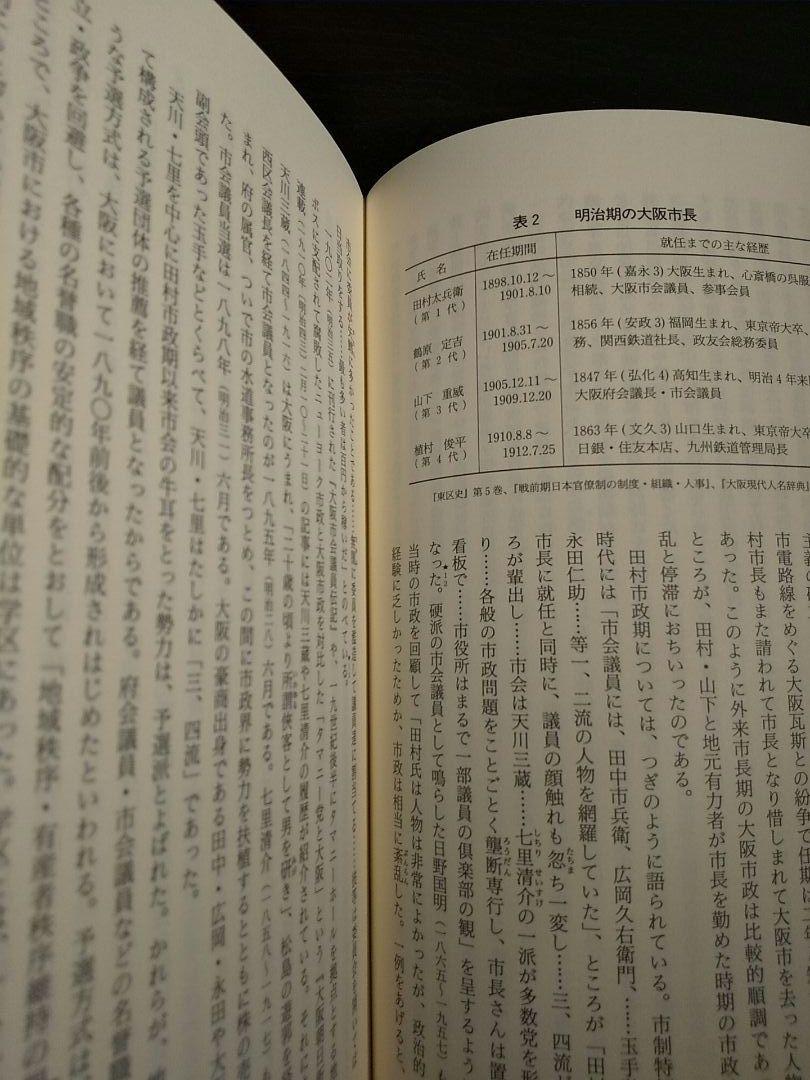 表2 明治期の大阪市長
氏 名 在任期間 就任までの主な経歴
田村太兵衛(第1代) 1898.10.12～1901.8.10 1850年(嘉永3)大阪生まれ、心斎橋の呉服
相続、大阪市会議員、参事会員
鶴原 定吉(第2代) 1901.8.31～1905.7.20 1856年(安政3)福岡生まれ、東京帝大卒、
務、関西鉄道社長、政友会総務委員
山下 重威(第3代) 1905.12.11～1909.12.20 1847年(弘化4)高知生まれ、明治4年来
大阪府会議長・市会議員
植村 俊平(第4代) 1910.8.8～1912.7.25 1863年(文久3)山口生まれ、東京帝大卒
日銀・住友本店、九州鉄道管理局長
『東区史』第5巻、『戦前期日本官僚制の制度・組織・人事』、『大阪現代人名辞典』
市電路線をめぐる大阪瓦斯との紛争で任期は
村市長もまた請われて市長となり惜しまれて大阪市を去った人物
あった。このように外来市長期の大阪市政は比較的順調であ
ところが、田村・山下と地元有力者が市長を勤めた時期の市政
乱と停滞におちいったのである。
田村市政期については、つぎのように語られている。市制特
時代には「市会議員には、田中市兵衛、広岡久右衛門、……玉手
永田仁助……等一、二流の人物を網羅していた」、ところが「田
市長に就任と同時に、議員の顔触れも忽ち一変し……三、四流が
ろが輩出し……市会は天川三蔵……七里清介の一派が多数党を形
り……各般の市政問題をことごとく壟断専行し、市長さんは置
看板で……市役所はまるで一部議員の倶楽部の観」を呈するよう
なった。★12硬派の市会議員として鳴らした日野国明(一八六五～一九五七)も
当時の市政を回顧して「田村氏は人物は非常によかったが、政治的
経験に乏しかったためか、市政は相当に紊乱した。一例をあげると、
日治取りをする……最も多い者は百円から稼いだ」とのべている。
一九〇二年(明治三五)に刊行された『大阪市会議員伝記』や、一九世紀後半にタマニーホールを拠点とする
ボスに支配されて腐敗したニューヨーク市政と大阪市政を対比した「タマニー党と大阪」という『大阪朝日新
連載(一九一〇年(明治四三)二月一〇～二一日)の記事には天川三蔵や七里清介の履歴が紹介されている。それに
天川三蔵(一八四四～一九一六)は大阪にうまれ、「二十歳の頃より所謂侠客として男を研き」、松島の遊廓を
西区会議長を経て市会議員となったのが一八九五年(明治二八)六月である。七里清介(一八五八～一九一七)も
まれ、府の属官、ついで市の水道事務所長をつとめ、この間に市政界に勢力を扶植するとともに株の売
た。市会議員当選は一八九八年(明治三一)六月である。大阪の豪商出身である田中・広岡・永田や大
副会頭であった玉手などとくらべて、天川・七里はたしかに「三、四流」であった。
天川・七里を中心に田村市政期以来市会の牛耳をとった勢力は、予選派とよばれた。かれらが、地
て構成される予選団体の推薦を経て議員となったからである。府会議員・市会議員などの名誉職
うな予選方式は、大阪において一八九〇年前後から形成されはじめたといわれる。予選方式は、
立・政争を回避し、各種の名誉職の安定的な配分をとおして、地域秩序・有産者秩序維持の
ところで、大阪市における地域秩序の基礎的な単位は学区にあった。